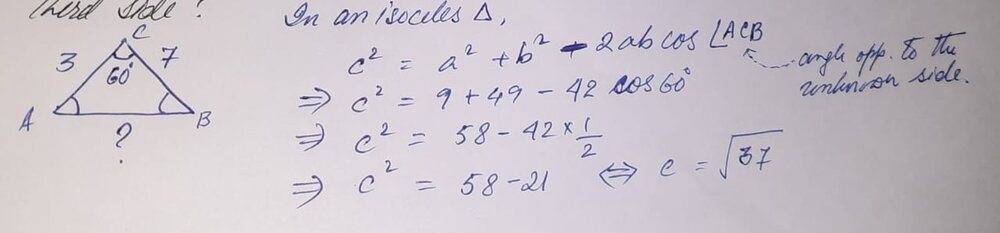 Third side?
In an isoceles Δ,
C
3
7
60°
A
B
?
c² = a² + b² - 2ab cos ∠ACB
angle opp. to the
unknown side.
⇒ c² = 9 + 49 - 42 cos 60°
⇒ c² = 58 - 42 × 1/2
⇒ c² = 58 - 21 ⇔ c = √37